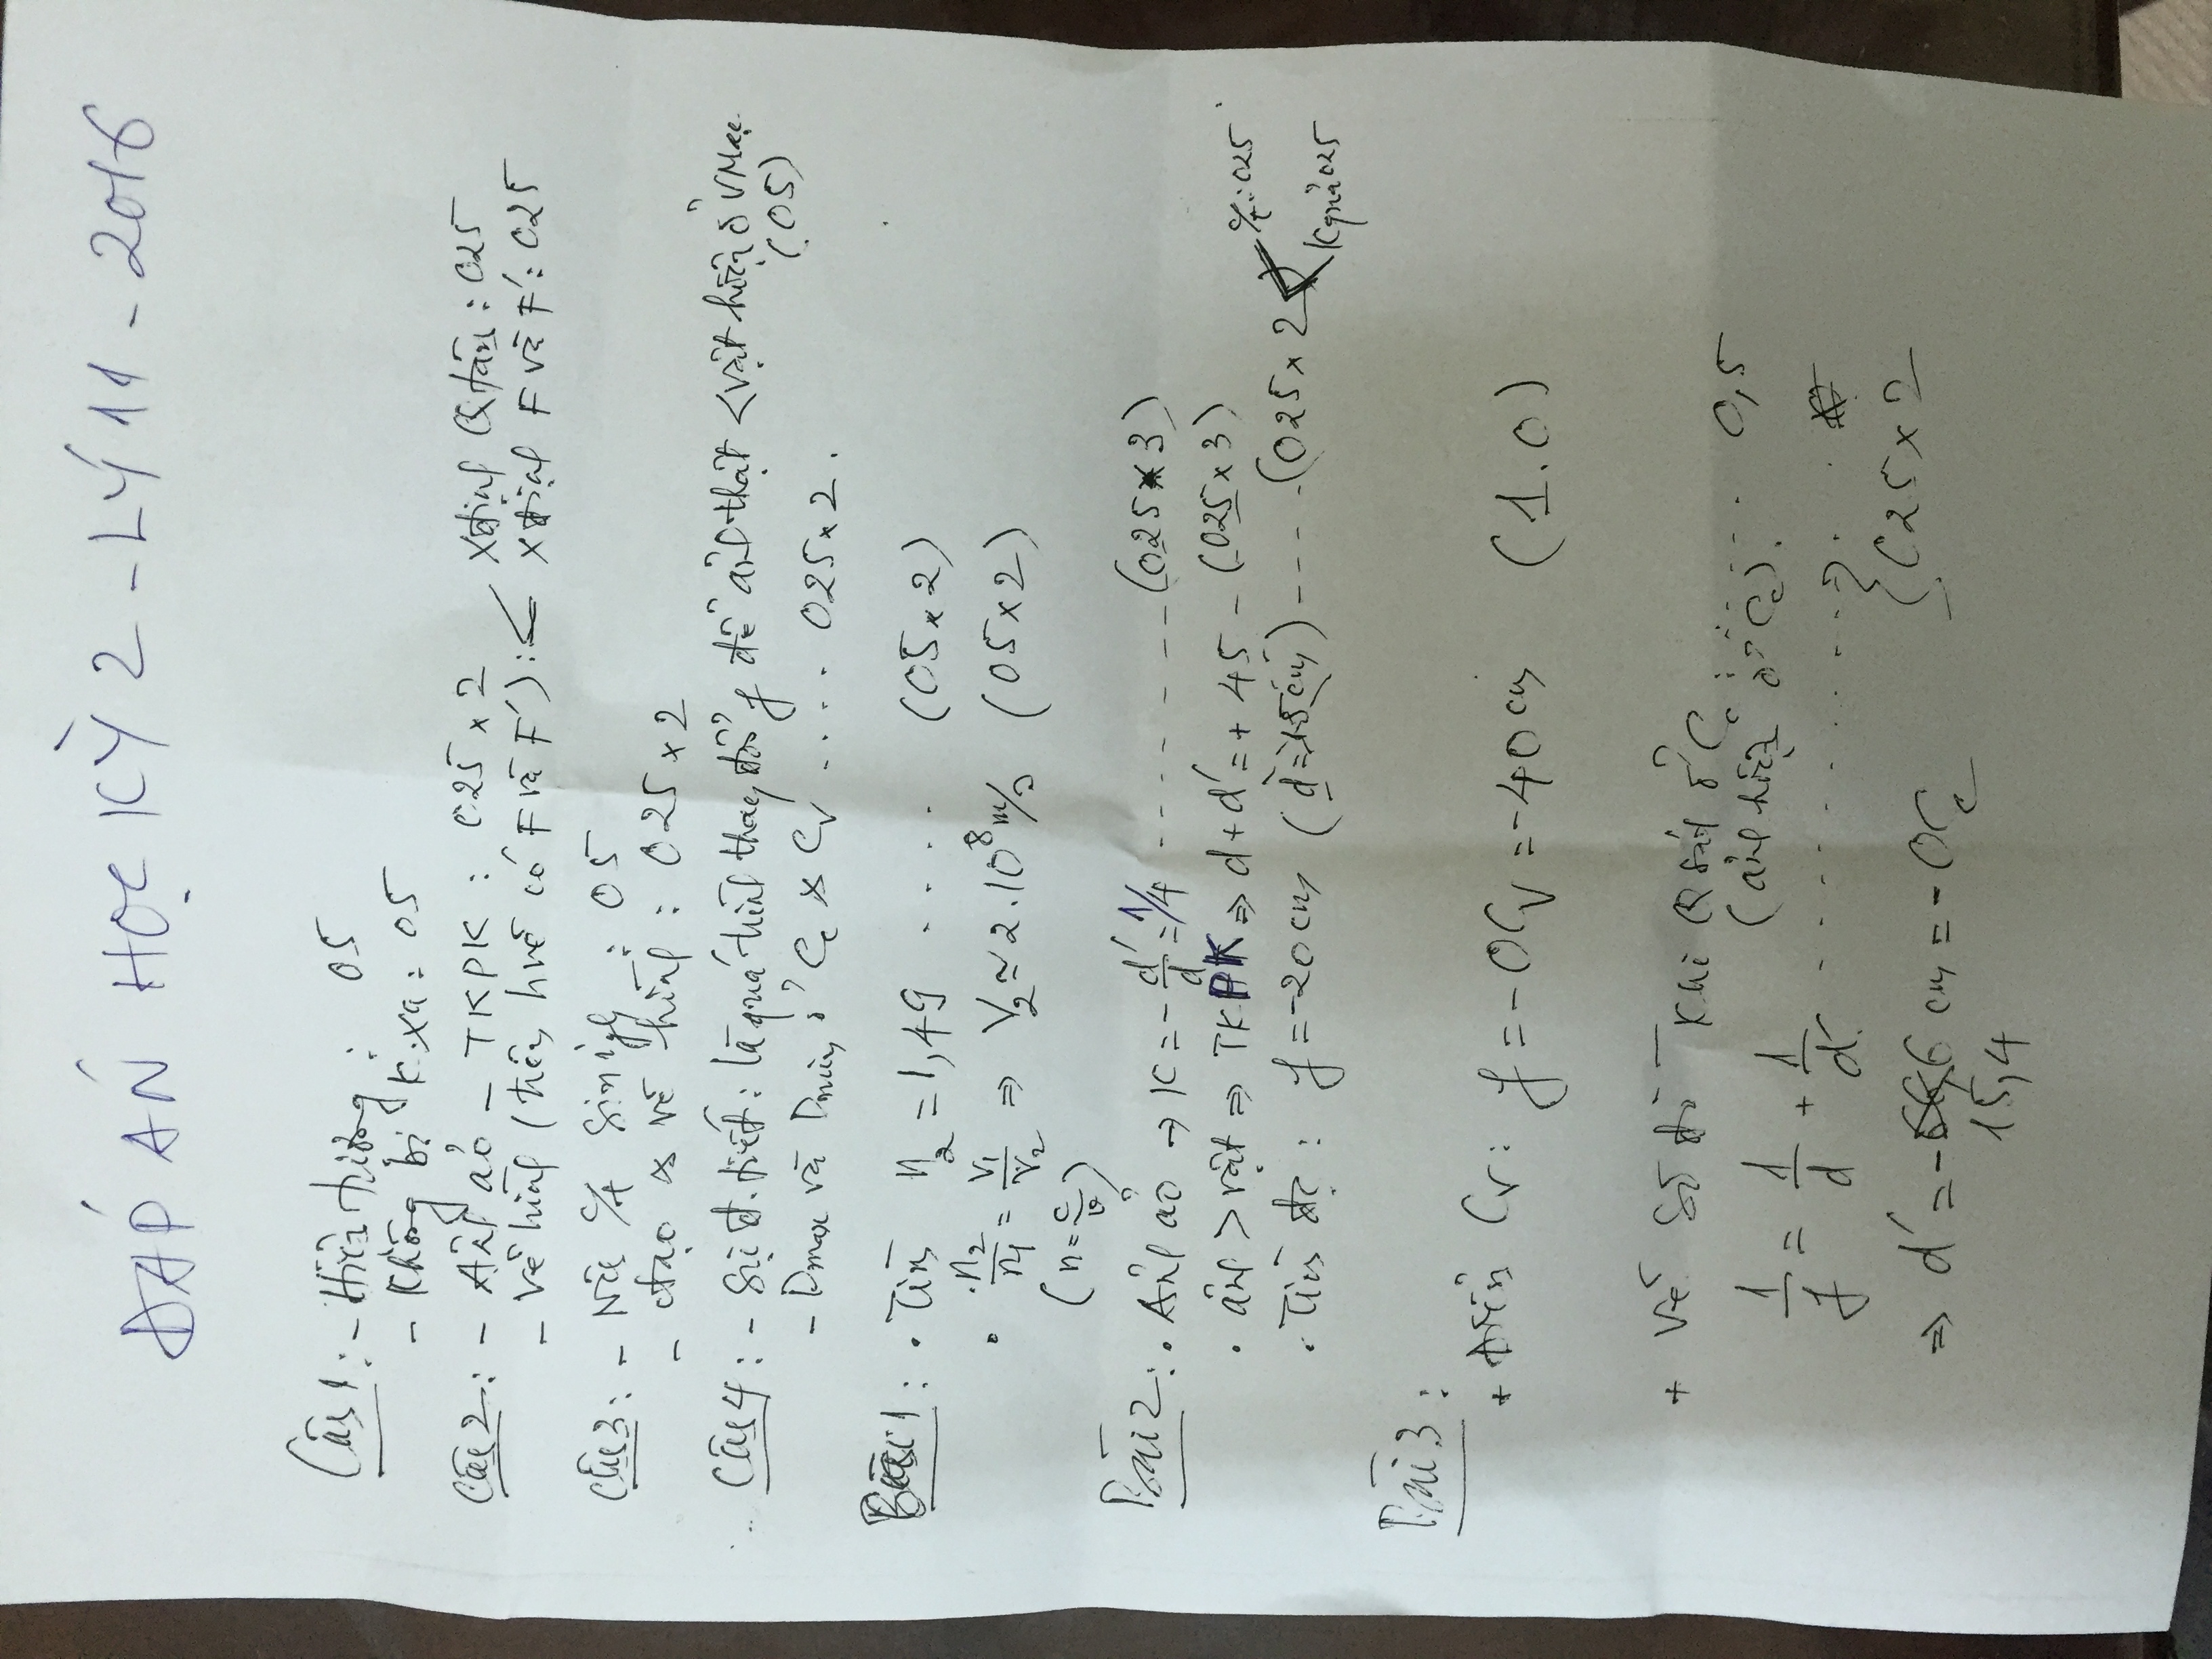 ĐÁP ÁN HỌC KỲ 2 - LÝ 11 - 2016
Câu 1: - Hiện tượng: 05
- Không bị k.xạ: 05
Câu 2: - Ảnh ảo - TKPK: 025 x 2
- Vẽ hình (tiên, hướ có F và F'): < xđịnh Q.tâm: 025
xđịnh F và F': 025
Câu 3: - Nêu sinigh: 05
- đạo x vẽ hình: 025 x 2
Câu 4: - Sự đ.tiết: là quá trình thay đổi f để ảnh thật <vật hiện ở VMạc
(05)
- Dmax và Dmin ở Cc x Cv .... 025 x 2.
Bài 1: • Tìm n₂ = 1,49 .... (05 x 2)
• n₂/n₁ = v₁/v₂ ⇒ V₂ ≃ 2.10⁸ m/s (05 x 2)
(n = c/v)
Bài 2: • Ảnh ảo → K = -d'/d = 1/4 ------- (025 x 3)
• ảnh > vật ⇒ TKPK ⇒ d + d' = + 45 - (025 x 3)
• Tìm đc: f = -20 cm (d = 15 cm) ---- (025 x 2 < c/t: 025
Kquả 025
Bài 3:
+ Nhìn Cv: f = -OCv = -40 cm (1.0)
+ Vẽ Sơ đồ - Khi Q sát ở Cc: .... 0,5
(ảnh hiện ở Cc)
1/f = 1/d + 1/d' ........ }
⇒ d' = - cm = -OCc (025 x 2
15,4